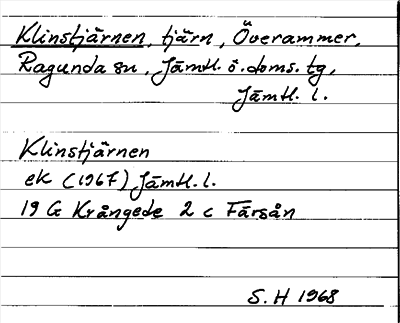 Klinstjärnen, tjärn, Överammer,
Ragunda sn, Jämtl. ö. doms. tg,
Jämtl. l.
Klinstjärnen
ek (1967) Jämtl. l.
19 G Krångede 2 c Färsån
S. H 1968